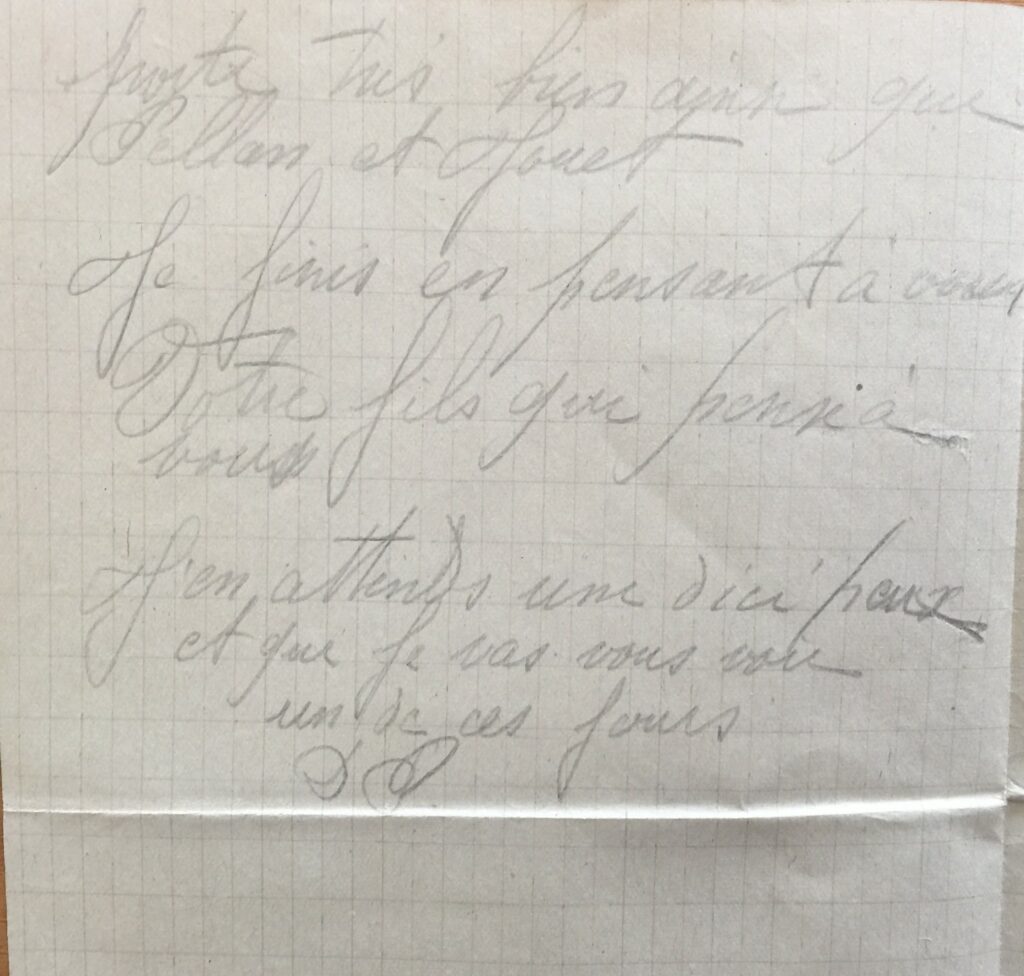 porte tres bien ainsi que
Pellan et Jouet
Je finis en pensant à vous
Votre fils qui pense à
vous
J'en attends une dici peux
et que je vas vous voir
un de ces jours